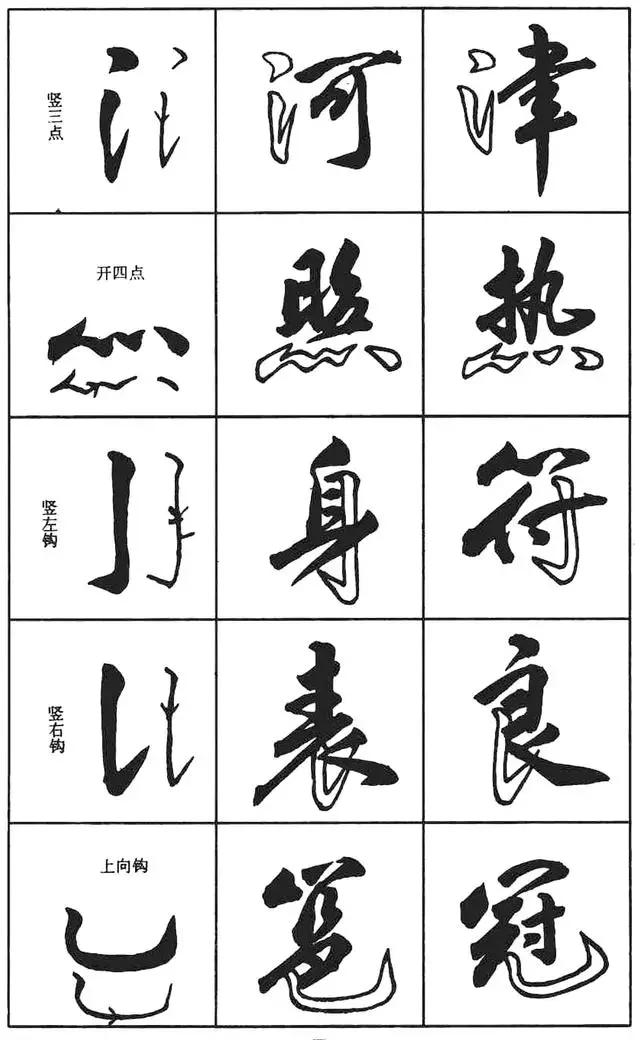 竖三点
河
津
开四点
照
热
竖左钩
身
符
竖右钩
表
良
上向钩
冠